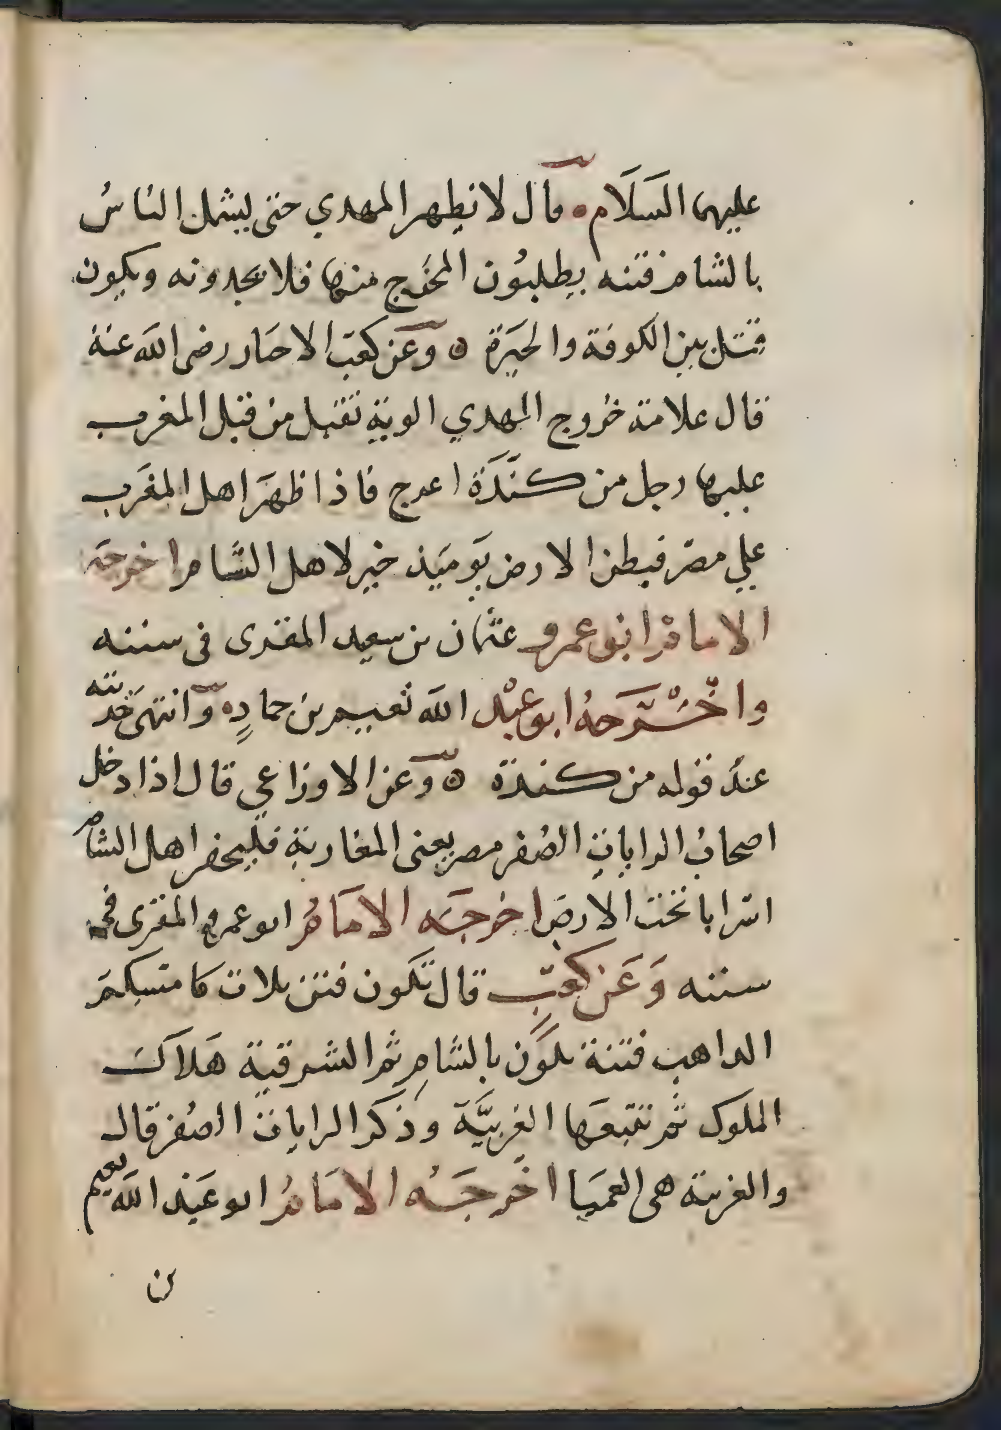 عليهما السَلَام قال لا يظهر المهدي حتى يشمل الناسُ
بالشام فتنه يطلبُون المخرَج منها فلا يجدونه ويكون
قتل بين الكوفة والحِيَرة وعَن كعب الاحبار رضى الله عنهُ
قال علامة خروج المهدي الوية تقبل من قبل المغرب
عليها رجل من كندَة اعرج فاذا ظهرَ اهل المغرب
علي مصر فبطن الارض يَوميَذ خير لاهل الشام اخرجَه
الامام ابو عمرو عثمان بن سعيد المقري في سننه
واخرَجهُ ابو عبْد الله نعيم بن حمادٍ وانتهى حَديثه
عند قوله من كندة وعن الاوزاعي قال اذا دخل
اصحابُ الرايات الصُفر مصر يعنى المغاربة فليحفر اهل الشام
اسرابا تحت الارض اخرجَه الامَامُ ابو عمرو المقرى في
سننه وَعَن كعبٍ قال تكون فتن ثلاث كامسكم
الذاهب فتنة تكوَن بالشام ثم الشرقية هَلاك
الملوك ثم تتبعَها الغربيَّة وذكَر الرايات الصُفر قال
والغربية هى العميَا اخرجَهُ الامَامُ ابو عَبْد الله نعيم
بن